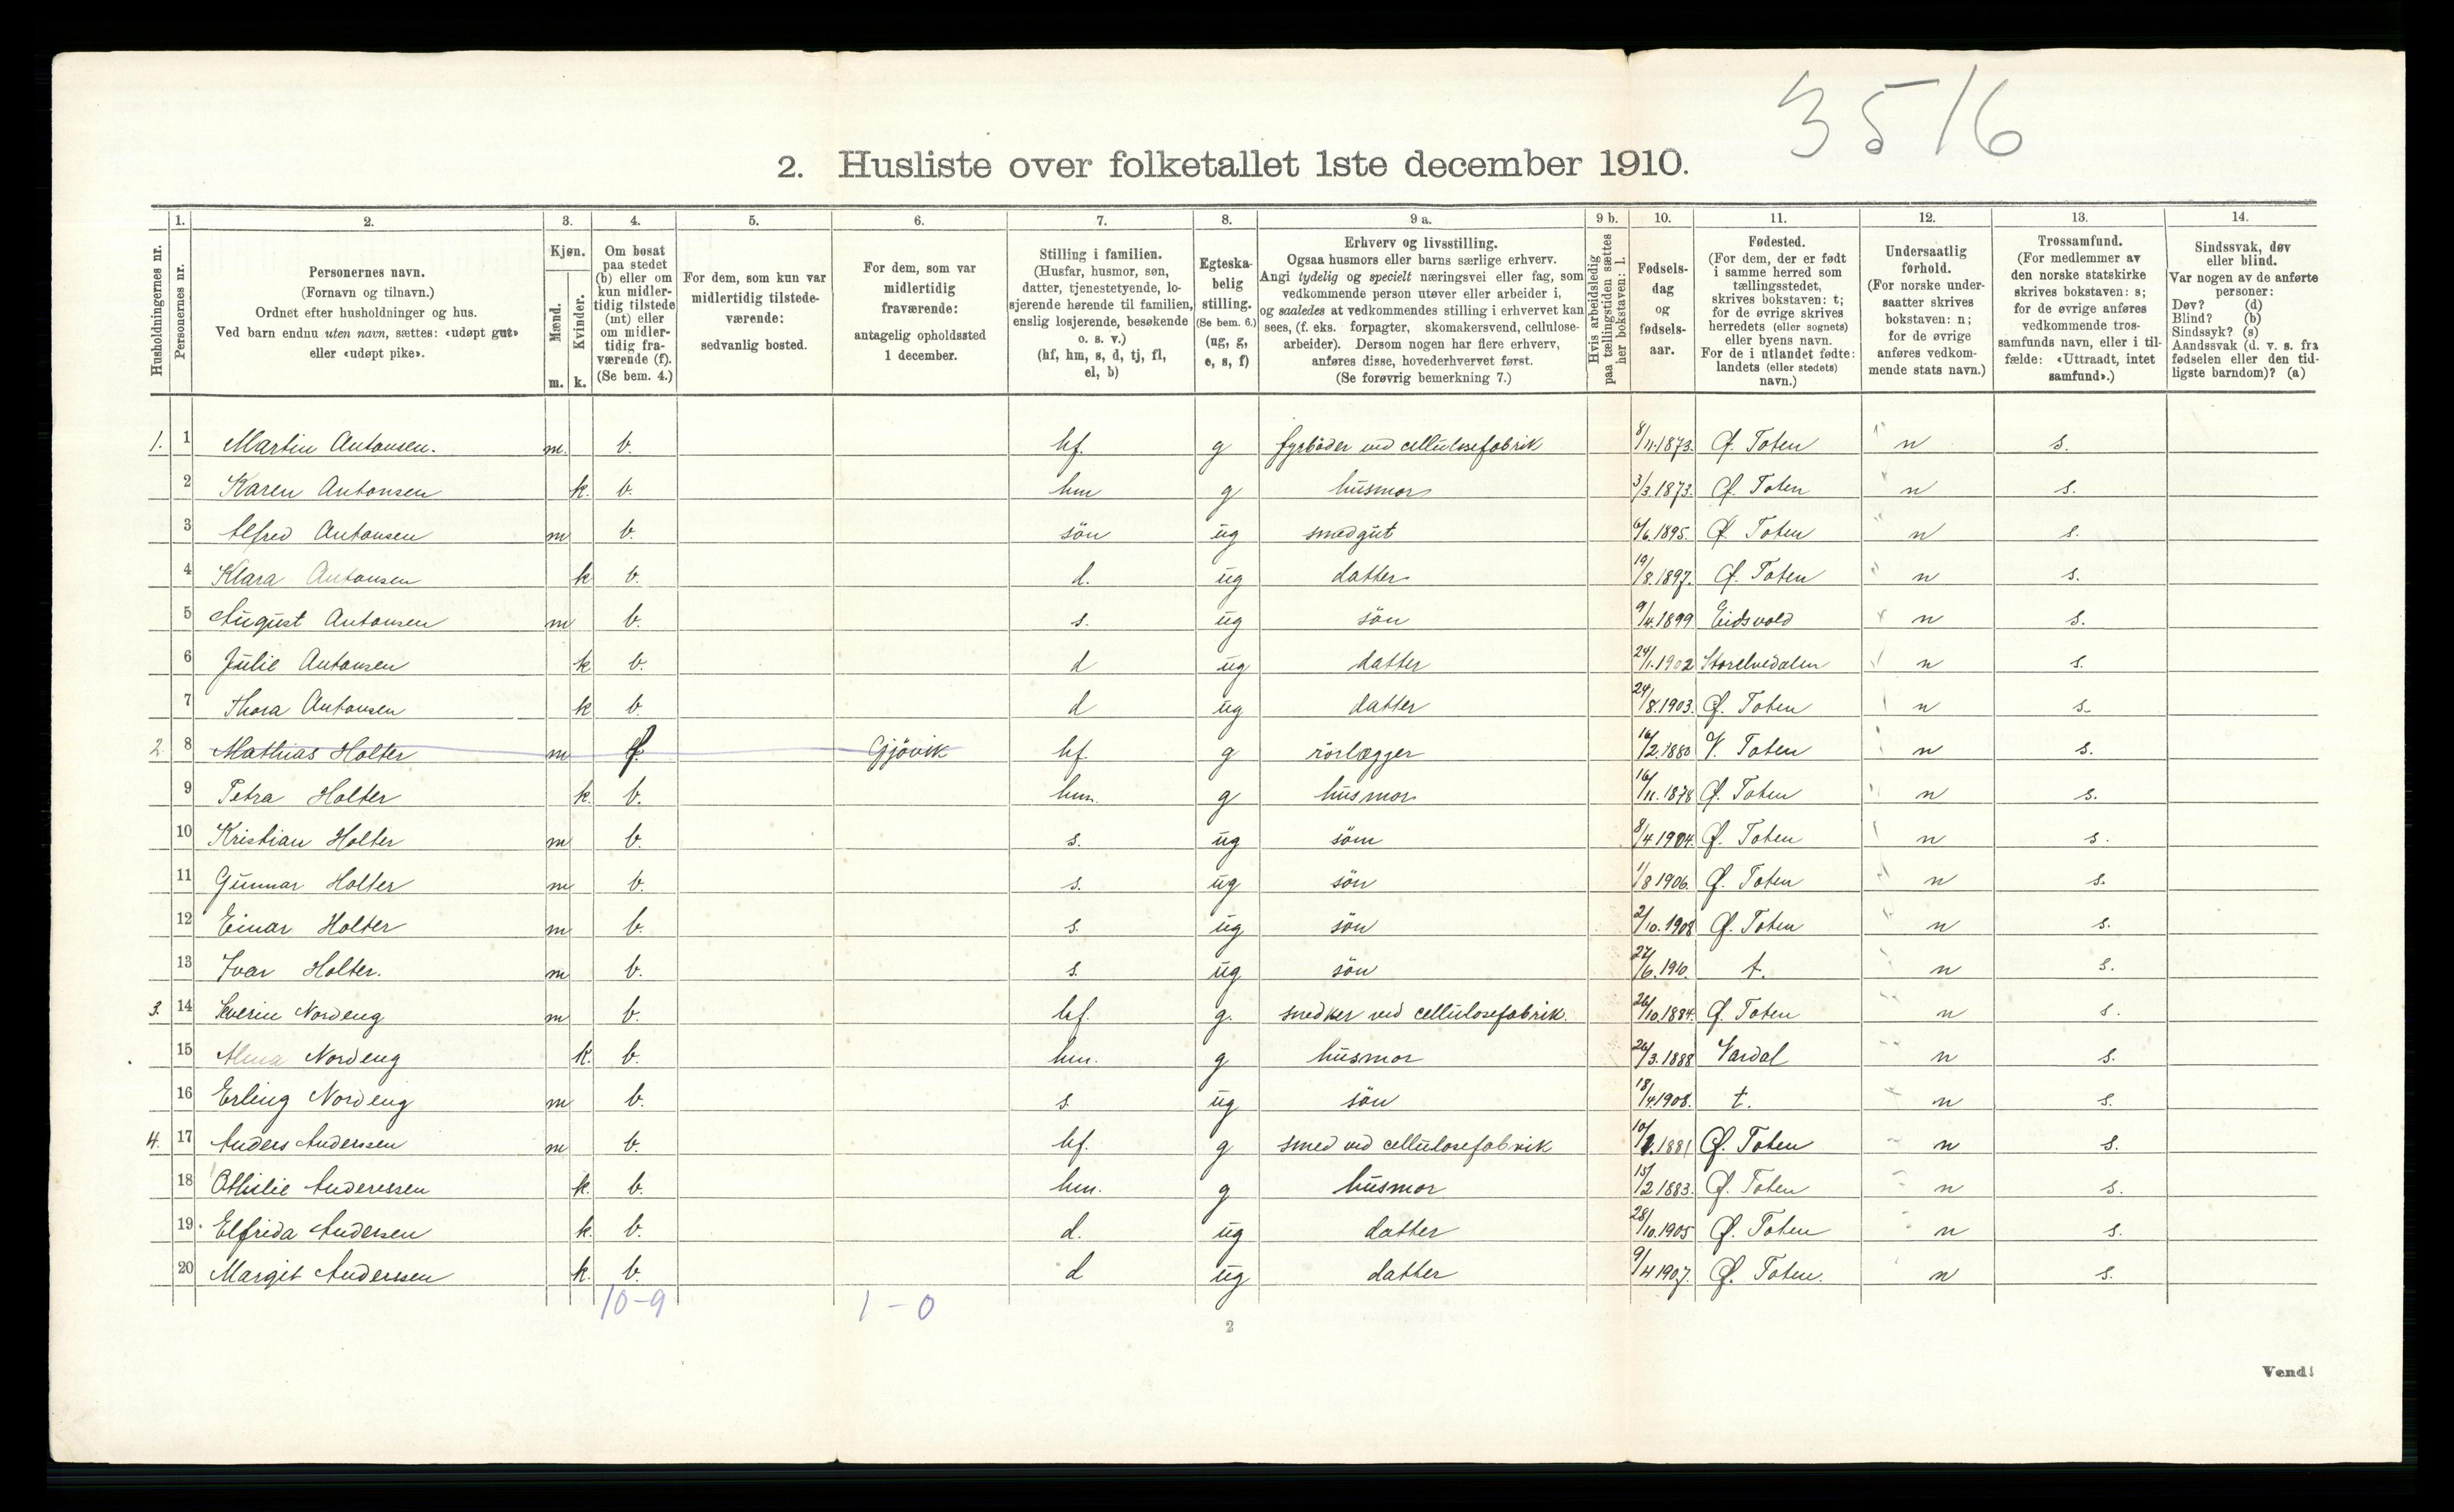 3516
2. Husliste over folketallet 1ste december 1910.
Husholdningernes nr.
1. Personernes nr.
2. Personernes navn. (Fornavn og tilnavn.) Ordnet efter husholdninger og hus. Ved barn endnu uten navn, sættes: «udøpt gut» eller «udøpt pike».
3. Kjøn. Mænd. m. Kvinder. k.
4. Om bosat paa stedet (b) eller om kun midler-tidig tilstede (mt) eller om midler-tidig fra-værende (f). (Se bem. 4.)
5. For dem, som kun var midlertidig tilstede-værende: sedvanlig bosted.
6. For dem, som var midlertidig fraværende: antagelig opholdssted 1 december.
7. Stilling i familien. (Husfar, husmor, søn, datter, tjenestetyende, lo-sjerende hørende til familien, enslig losjerende, besøkende o. s. v.) (hf, hm, s, d, tj, fl, el, b)
8. Egteska-belig stilling. (Se bem. 6.) (ug, g, e, s, f)
9 a. Erhverv og livsstilling. Ogsaa husmors eller barns særlige erhverv. Angi tydelig og specielt næringsvei eller fag, som vedkommende person utøver eller arbeider i, og saaledes at vedkommendes stilling i erhvervet kan sees, (f. eks. forpagter, skomakersvend, cellulose-arbeider). Dersom nogen har flere erhverv, anføres disse, hovederhvervet først. (Se forøvrig bemerkning 7.)
9 b. Hvis arbeidsledig paa tællingstiden sættes her bokstaven: l.
10. Fødsels-dag og fødsels-aar.
11. Fødested. (For dem, der er født i samme herred som tællingsstedet, skrives bokstaven: t; for de øvrige skrives herredets (eller sognets) eller byens navn. For de i utlandet fødte: landets (eller stedets) navn.)
12. Undersaatlig forhold. (For norske under-saatter skrives bokstaven: n; for de øvrige anføres vedkom-mende stats navn.)
13. Trossamfund. (For medlemmer av den norske statskirke skrives bokstaven: s; for de øvrige anføres vedkommende tros-samfunds navn, eller i til-fælde: «Uttraadt, intet samfund».)
14. Sindssvak, døv eller blind. Var nogen av de anførte personer: Døv? (d) Blind? (b) Sindssyk? (s) Aandssvak (d. v. s. fra fødselen eller den tid-ligste barndom)? (a)
1. 1 Martin Antonsen. m. b. hf. g fyrböder ved cellulosefabrik 8/11.1873. Ø. Toten n s.
2 Karen Antonsen k. b. hm g husmor 3/3.1873. Ø. Toten n s.
3 Alfred Antonsen m b. sön ug smedgut 6/6.1895. Ø. Toten n s.
4 Klara Antonsen k b. d. ug datter 19/8.1897. Ø. Toten n s.
5 August Antonsen m b. s. ug sön 9/4.1899 Eidsvold n s.
6 Julie Antonsen k b. d ug datter 24/1.1902 Storelvedalen n s.
7 Thora Antonsen k b. d ug datter 24/8.1903. Ø. Toten n s.
2. 8 Mathias Holter m f. Gjövik hf. g rörlægger 16/2.1880 V. Toten n s.
9 Petra Holter k. b. hm. g husmor 16/11.1878 Ø. Toten n s.
10 Kristian Holter m b. s. ug söm 8/4 1904. Ø. Toten n s.
11 Gunnar Holter m b. s. ug sön 1/8 1906. Ø. Toten n s.
12 Einar Holter m b. s. ug sön 2/10.1908 Ø. Toten n s.
13 Ivar Holter. m b. s. ug sön 27/6.1910. t. n s.
3. 14 Severin Nordeng m b. hf. g. snedker ved cellulosefabrik. 26/10.1884. Ø. Toten n s.
15 Alma Nordeng k. b. hm. g husmor 26/3.1888 Vardal n s.
16 Erling Nordeng m b. s. ug sön 18/4.1908. t. n s.
4. 17 Anders Anderssen m b. hf. g smed ved cellulosefabrik 10/ .1881 Ø. Toten n s.
18 Othilie Anderssen k. b. hm. g husmor 15/2 1883. Ø. Toten n s.
19 Elfrida Andersen k. b. d. ug datter 28/10.1905 Ø. Toten n s.
20 Margit Anderssen k. b. d ug datter 9/4 1907. Ø. Toten. n s.
10-9 1-0
2
Vend!